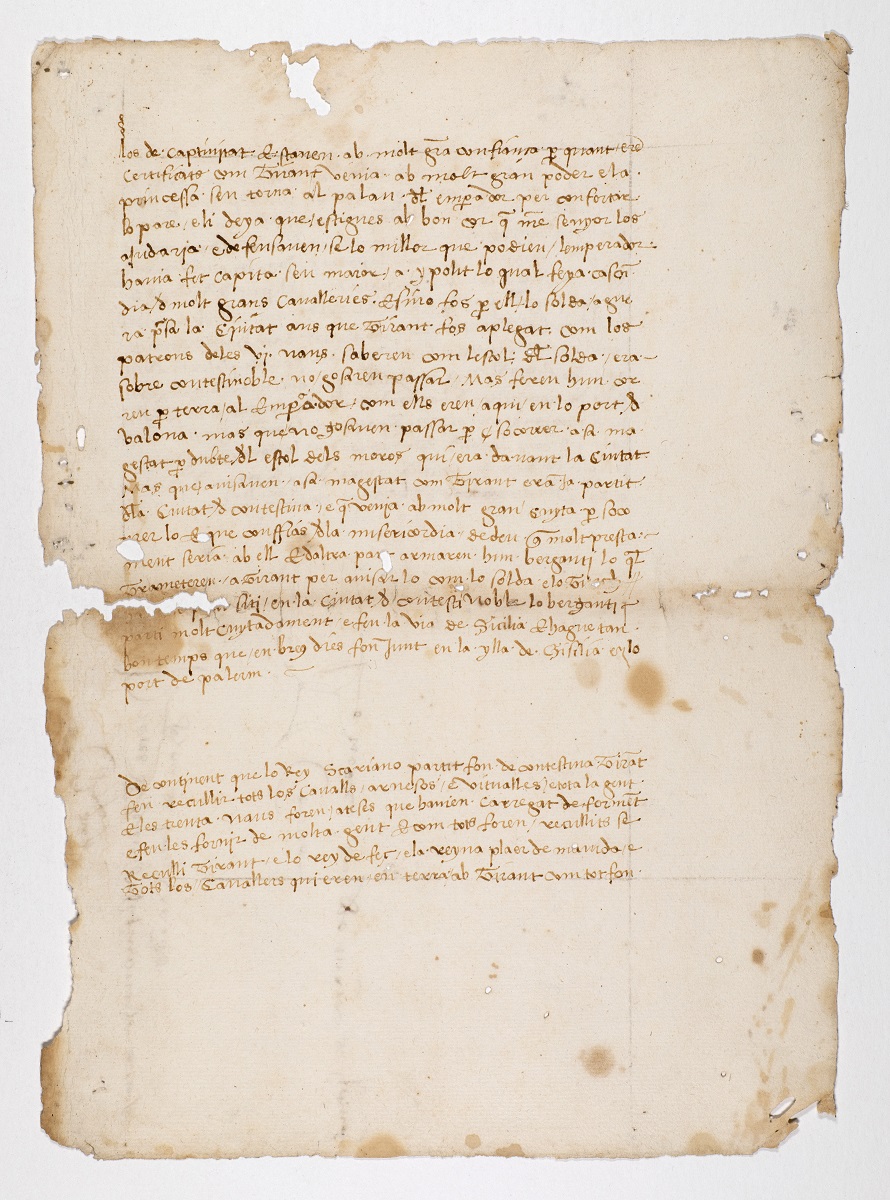 los de captiuitat · E stauen · ab · molt grã confiança · p̱ quant · erẽ
Certificats com Tirant venia · ab molt gran poder e la ·
princessa · sen torna · al palau · dl̃ emp̱ador per confortar
lo pare / e li deya que / estigues ab bon cor q̃ mr̃e senyor los
aiudaria · e defensauen / se lo millor que podien / lemperador
hauia fet capita seu maior / a · ypolit lo qual feya cascũ
dia / d molt grans Caualleries · E sino fos p̱ ell / lo solda / ague
ra p̱sa la Ciutat ans que Tirant fos aplegat com los
patrons deles vj · naus · saberen com lestol dl̃ solda / era
sobre contestinoble no / gosaren passar / Mas feren hun cor
reu p̱ terra / al Emp̱ador / com ells eren aqui / en lo port / d
valona · mas que no gosauen · passar p̱ socorrer · a sa ma
gestat p̱ dubte / dl estol dels moros qui / era dauant la Ciutat
Mas que auisauen · a sa magestat com Tirant era ia partit
dla Ciutat d contestina / e q̃ venia ab molt gran cuyta p̱ soco
rrer lo E que confias dla misericordia · de deu q̃ molt presta
ment seria · ab ell E daltra part armaren hun berganti lo ql̃
Trameteren / a Tirant per auisar lo com lo solda e lo
siti / en la Ciutat d contestinoble lo berganti
parti molt cuytadament / e feu la via de Sicilia E hague tan
bon temps que / en breus dies fon Iunt en la ylla de Sicilia en lo
port de palerm ·
De continent que lo Rey Scariano partit fon de contestina Tirãt
feu recullir tots los Caualls / arnesos / E vitualles / e tota la gent
E les trenta naus foren / ateses que hauien carregat de forment
e feu les fornir de molta gent E com tots foren / recullits se
Reculli Tirant / e lo rey de feç / e la reyna plaer de mauida / e
Tots los Cauallers qui eren / en terra / ab Tirant com tot fon